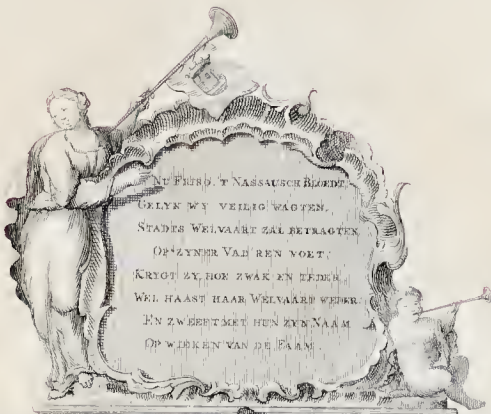 NU FRISO, 'T NASSAUSCH BLOEDT,
GELYK WY VEILIG WAGTEN,
STADTS WELVAART ZAL BETRAGTEN
OP ZYNER VAD'REN VOET,
KRYGT ZY, HOE ZWAK EN TEDER,
WEL HAAST HAAR WELVAART WEDER.
EN ZWEEFT MET HUN ZYN NAAM
OP WIEKEN VAN DE FAAM.